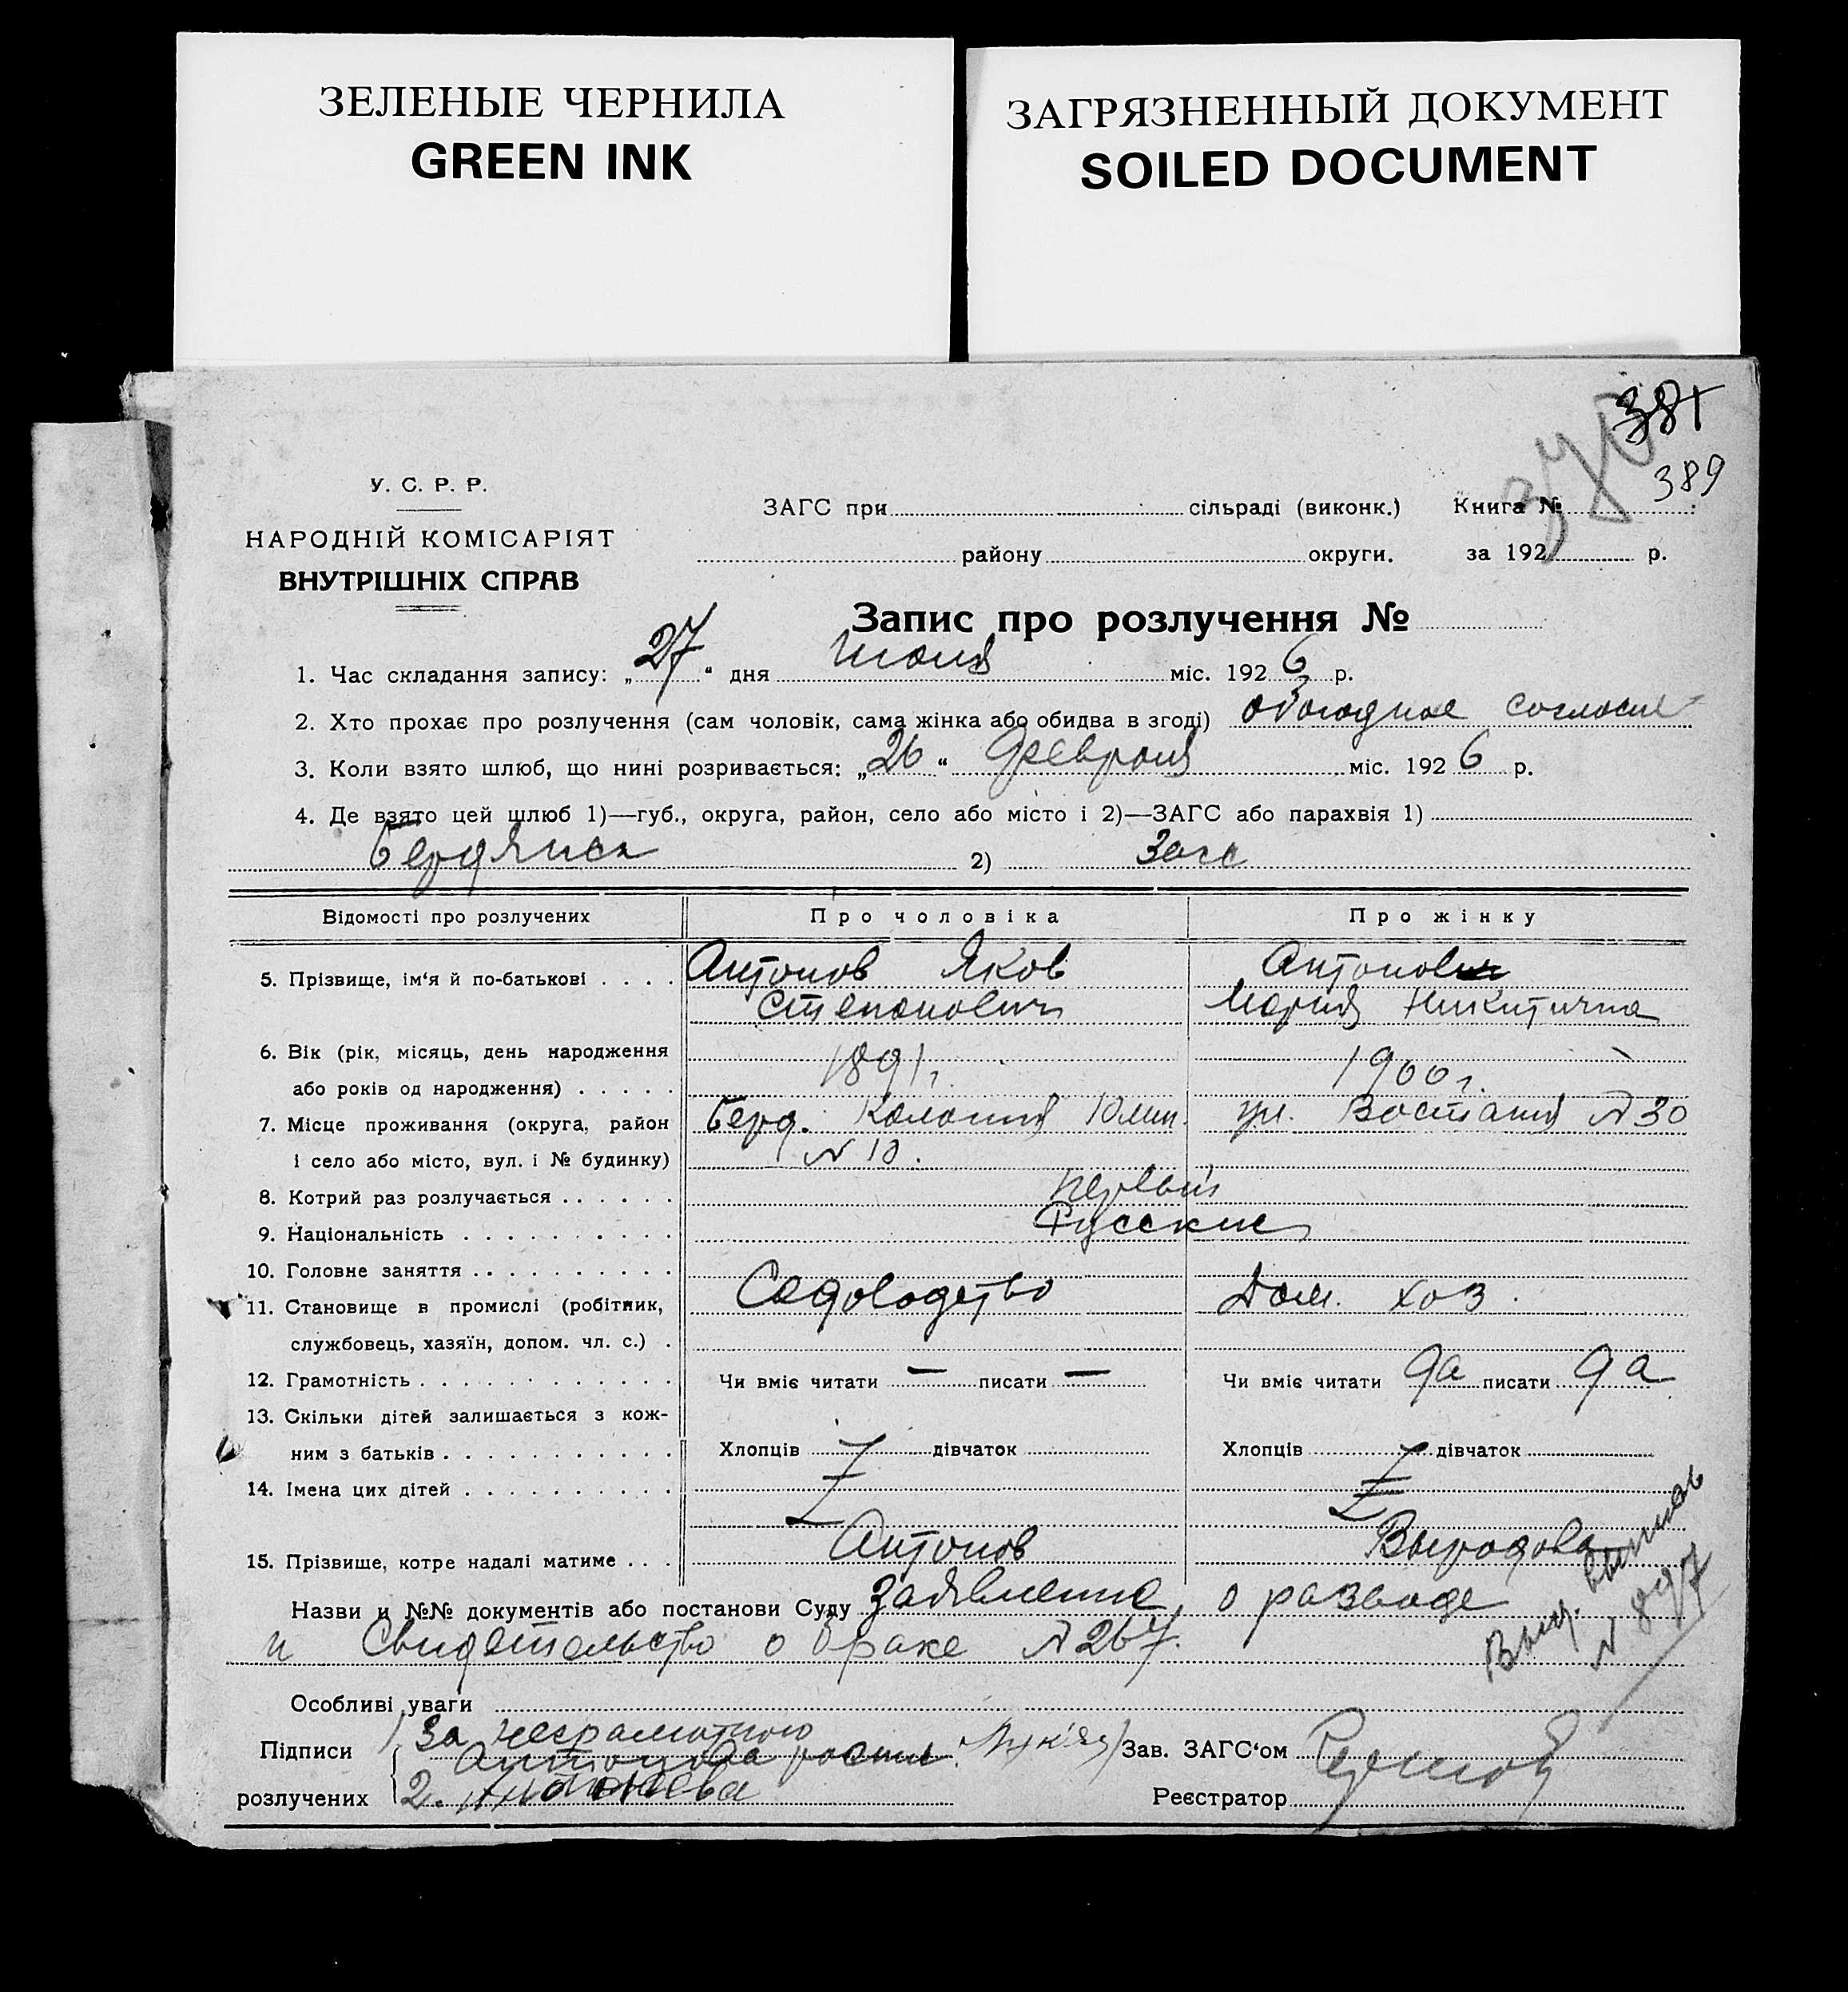 ЗЕЛЕНЫЕ ЧЕРНИЛА
GREEN INK
ЗАГРЯЗНЕННЫЙ ДОКУМЕНТ
SOILED DOCUMENT
381
389
У. С. Р. Р.
НАРОДНІЙ КОМІСАРІЯТ
ВНУТРІШНІХ СПРАВ
ЗАГС при сільраді (виконк.) Книга №
району округи. за 192 р.
Запис про розлучення №
1. Час складання запису: „27“ дня Июля міс. 1926 р.
2. Хто прохає про розлучення (сам чоловік, сама жінка або обидва в згоді) обоюдное согласие
3. Коли взято шлюб, що нині розривається: „26“ Февраля міс. 1926 р.
4. Де взято цей шлюб 1)—губ., округа, район, село або місто і 2)—ЗАГС або парахвія 1)
Бердянск 2) Загс
Відомості про розлучених Про чоловіка Про жінку
5. Прізвище, ім‘я й по-батькові Антонов Яков Антонов
Степанович Мария Никитична
6. Вік (рік, місяць, день народження
або років од народження) 1891 г. 1900 г.
7. Місце проживання (округа, район Берд. Колония 10 лин. ул. Востания № 30
і село або місто, вул. і № будинку) № 10.
8. Котрий раз розлучається первый
9. Національність Русские
10. Головне заняття
11. Становище в промислі (робітник, Садоводство Дом. хоз.
службовець, хазяїн, допом. чл. с.)
12. Грамотність Чи вміє читати — писати — Чи вміє читати да писати да
13. Скільки дітей залишається з кож-
ним з батьків Хлопців дівчаток Хлопців дівчаток
14. Імена цих дітей
15. Прізвище, котре надалі матиме Антонов Выродова
Назви и №№ документів або постанови Суду Заявление о разводе
и Свидетельство о браке № 267.
Выд. выпись
№ 897
Особливі уваги
Підписи 1) За неграмотного
Антонова роспис. Зав. ЗАГС‘ом
розлучених 2. Антонова Реєстратор